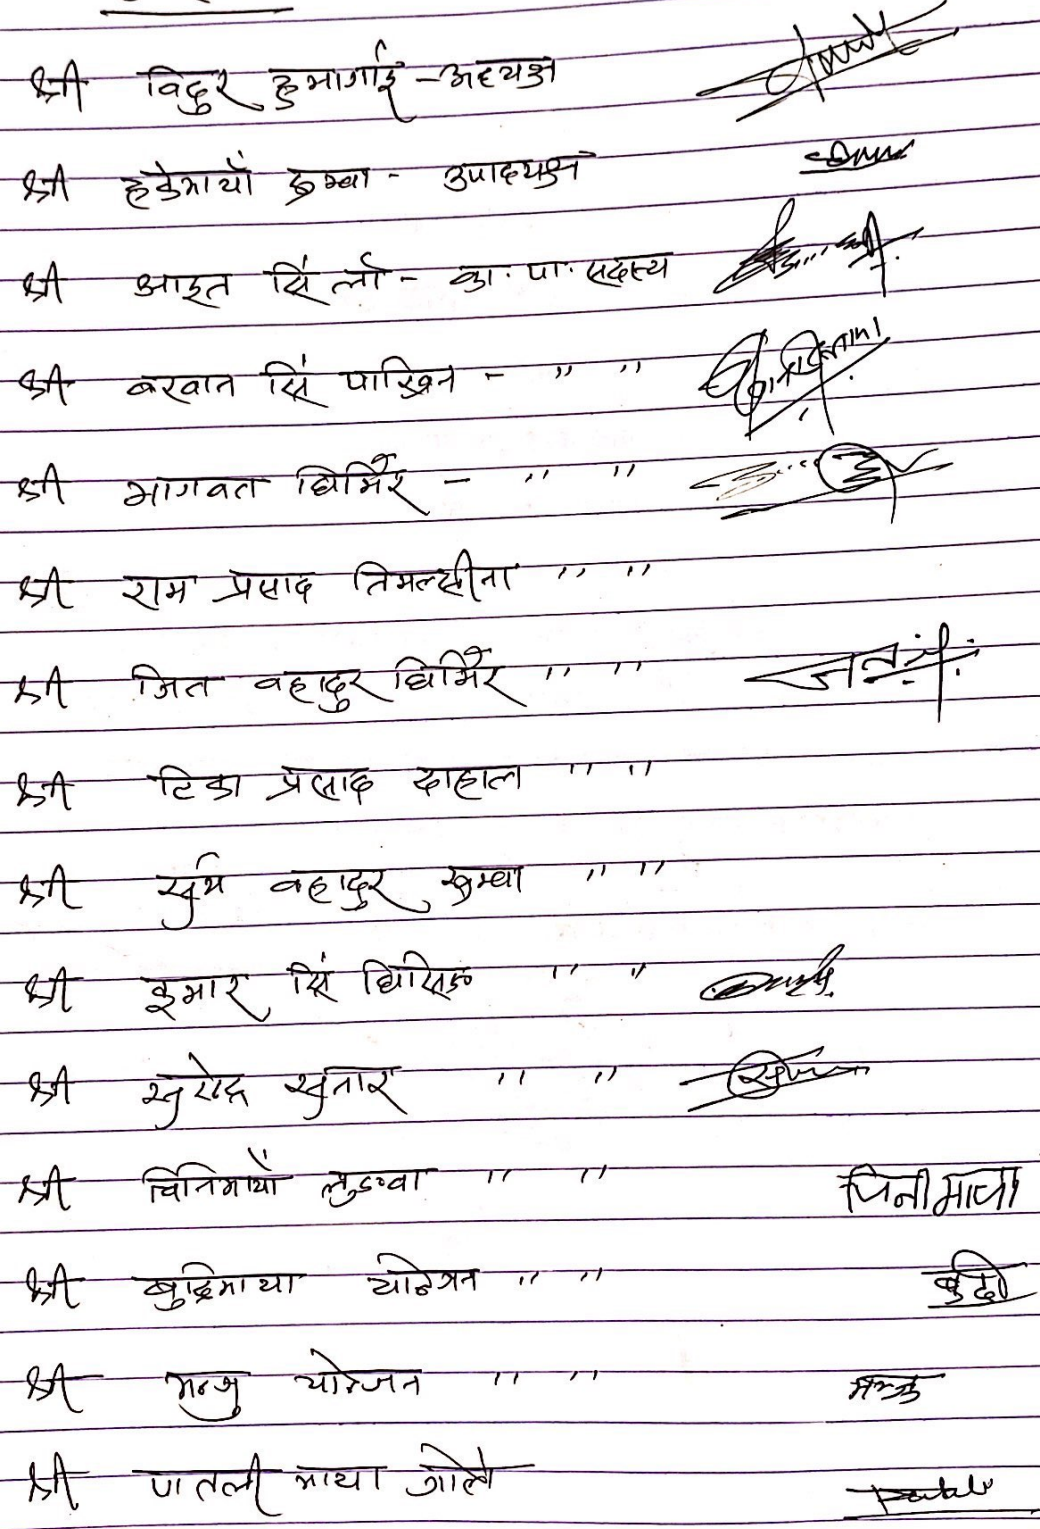 श्री विदुर हुमागाई - अध्यक्ष
श्री डुम्वा - उपाध्यक्ष
श्री आइत सिं लो - का. पा. सदस्य
श्री बखान सिं पाख्रिन - " "
श्री भागवत घिमिरे - " "
श्री राम प्रसाद तिमल्सीना " "
श्री जित वहादुर घिमिरे " "
श्री टिका प्रसाद दाहाल " "
श्री सुर्य वहादुर थुम्वा " "
श्री कुमार सिं घिसिङ " "
श्री सुरेन्द्र सुनार " "
श्री चिनिमाया लुङवा " " चिनीमाया
श्री बुद्धिमाया योन्जन " " बुद्दी
श्री मन्जु योन्जन " " मन्जु
श्री पातली माया गोले